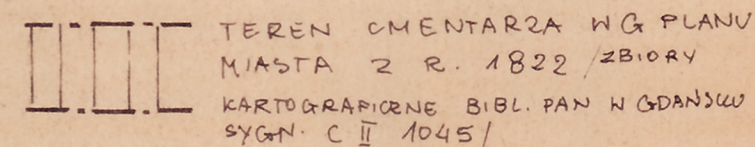 TEREN CMENTARZA WG PLANU
MIASTA Z R. 1822 /ZBIORY
KARTOGRAFICZNE BIBL. PAN W GDAŃSKU
SYGN. C II 1045/